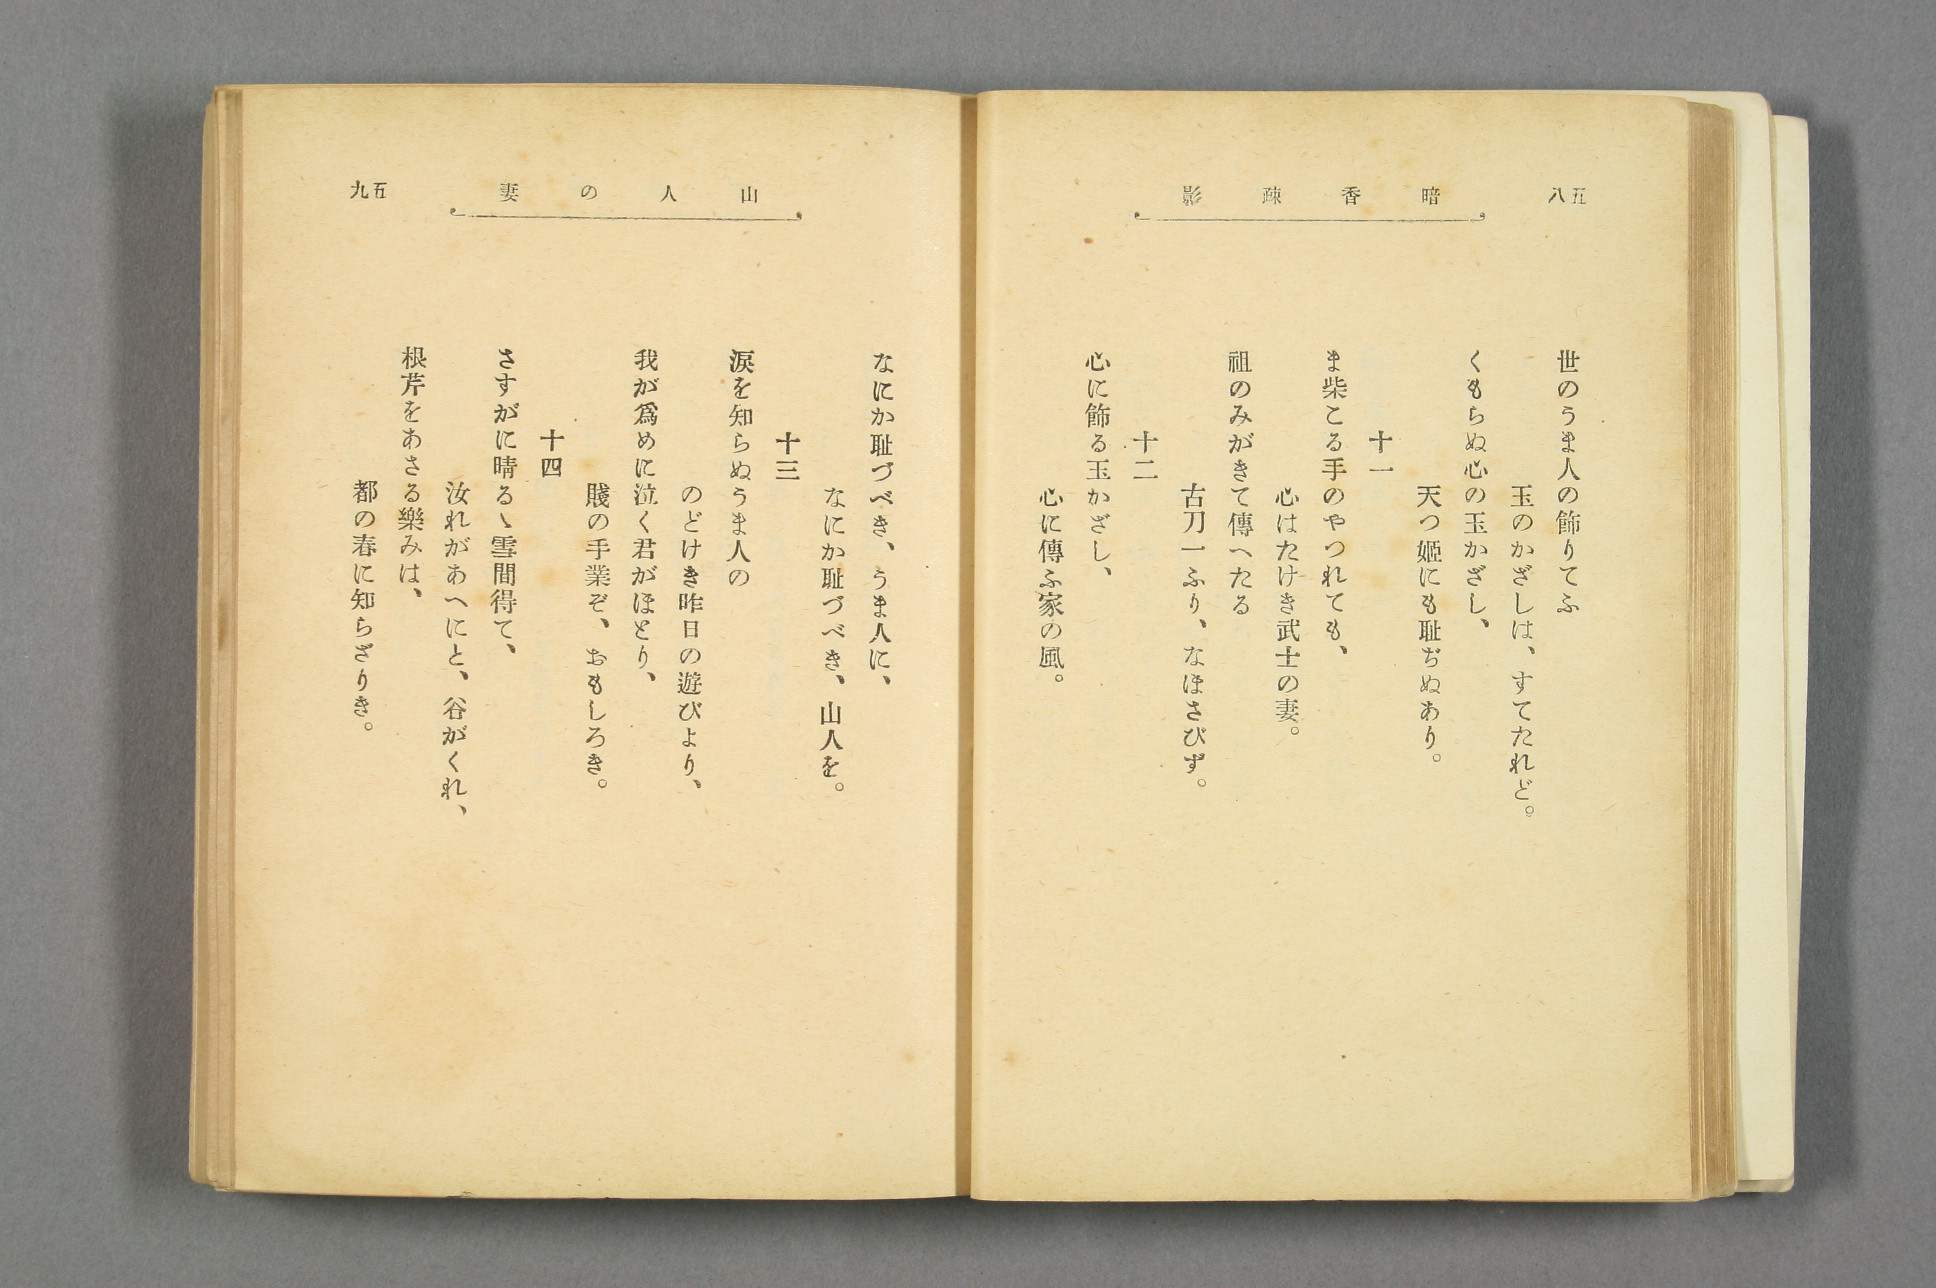 五八
暗香疎影
世のうま人の飾りてふ
玉のかざしは、すてたれど。
くもらぬ心の玉かざし、
天つ姫にも耻ぢぬあり。
十一
ま柴こる手のやつれても、
心はたけき武士の妻。
祖のみがきて傳へたる
古刀一ふり、なほさびず。
十二
心に飾る玉かざし、
心に傳ふ家の風。
山人の妻
五九
なにか耻づべき、うま人に、
なにか耻づべき、山人を。
十三
涙を知らぬうま人の
のどけき昨日の遊びより、
我が爲めに泣く君がほとり、
賤の手業ぞ、おもしろき。
十四
さすがに晴るゝ雪間得て、
汝れがあへにと、谷がくれ、
根芹をあさる樂みは、
都の春に知らざりき。